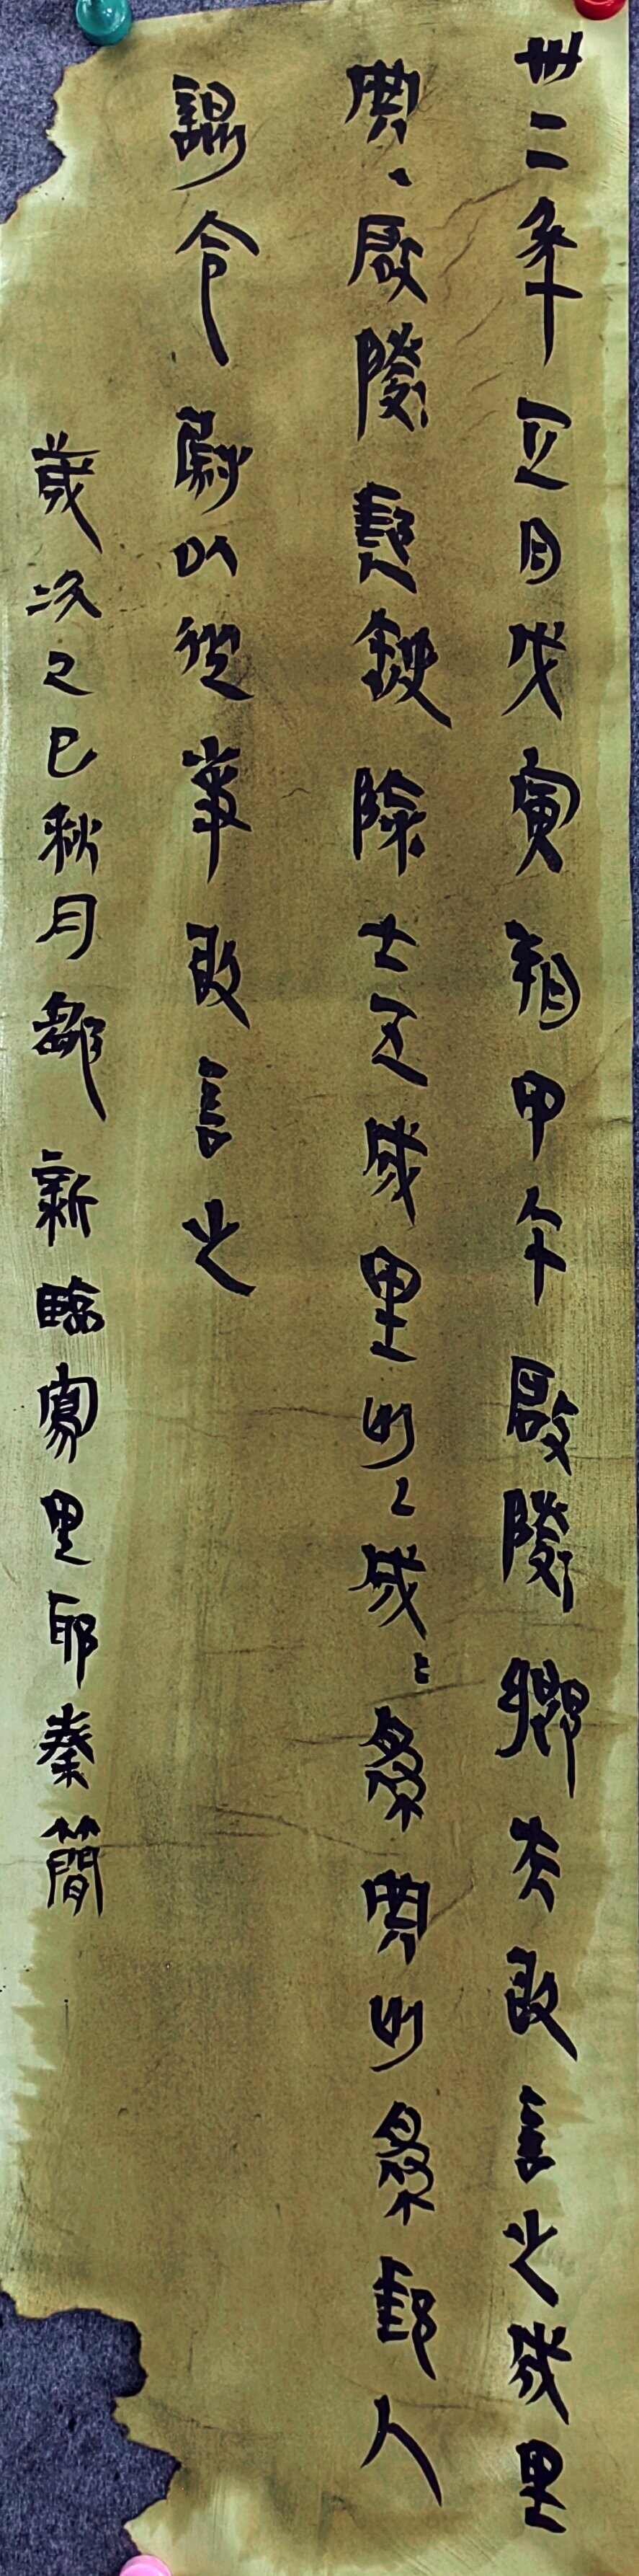 卅二年正月戊寅朔甲午啟陵鄉夫敢言之成里
典、啟陵郵人缺除士五成里匄㇄成〻為典匄為郵人
謁令尉以從事敢言之
歲次乙巳秋月鄒新臨寫里耶秦簡